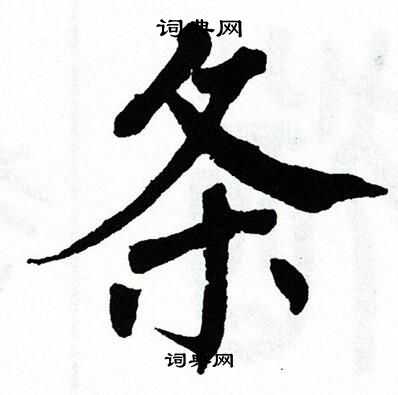 词典网
条
词典网